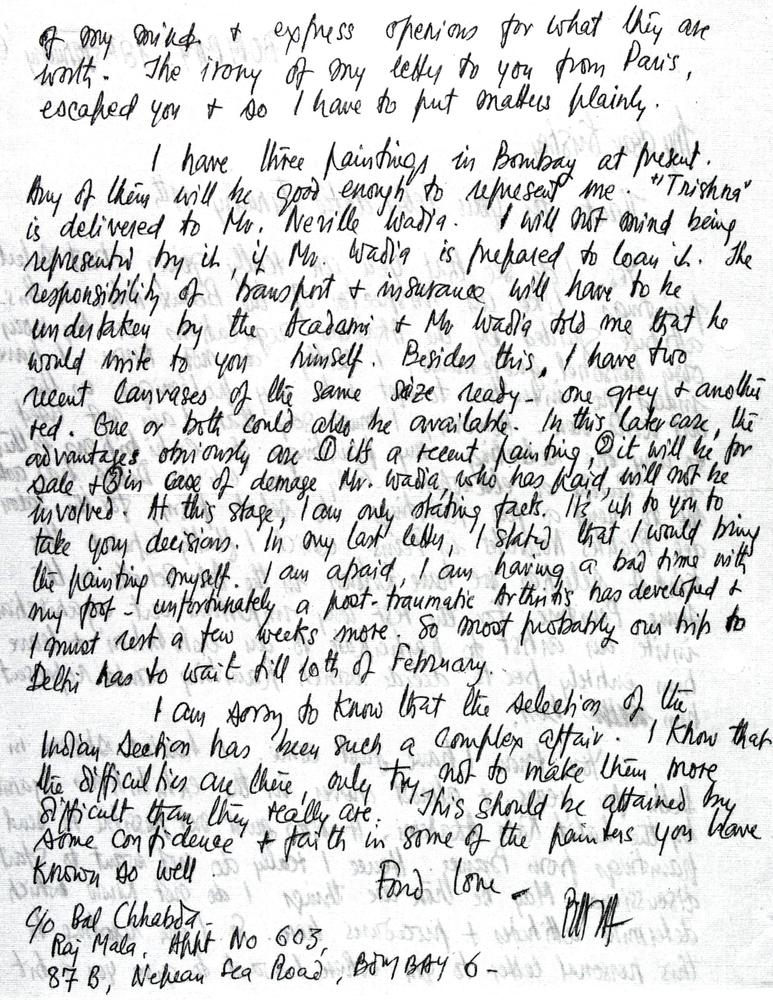 of my mind & express openions for what they are
worth. The irony of my letter to you from Paris,
escaped you & so I have to put matters plainly.
I have three paintings in Bombay at present.
Any of them will be good enough to represent me. "Trishna"
is delivered to Mr. Neville Wadia. I will not mind being
represented by it, if Mr. Wadia is prepared to loan it. The
responsibility of transport & insurance will have to be
undertaken by the Acadami & Mr Wadia told me that he
would write to you himself. Besides this, I have two
recent canvases of the same size ready - one grey & another
red. One or both could also be available. In this later case, the
advantages obviously are ① its a recent painting, ② it will be for
sale & ③ in case of demage Mr. Wadia, who has paid, will not be
involved. At this stage, I am only stating facts. Its up to you to
take your decisions. In my last letter, I stated that I would bring
the painting myself. I am afraid, I am having a bad time with
my foot - unfortunately a post-traumatic Arthritis has developed &
I must rest a few weeks more. So most probably our trip to
Delhi has to wait till 10th of February.
I am sorry to know that the selection of the
Indian Section has been such a complex affair. I know that
the difficulties are there, only try not to make them more
difficult than they really are. This should be attained by
some confidence & faith in some of the painters you have
known so well.
Fond love -
C/o Bal Chhabda -
Raj Mala, Appt No 603,
87 B, Nepean Sea Road, BOMBAY 6 -